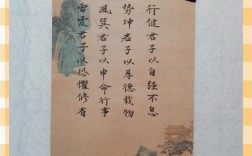 行健君子以自强不息
势坤君子以厚德载物
風巽君子以申命行事
雷震君子以恐懼修省